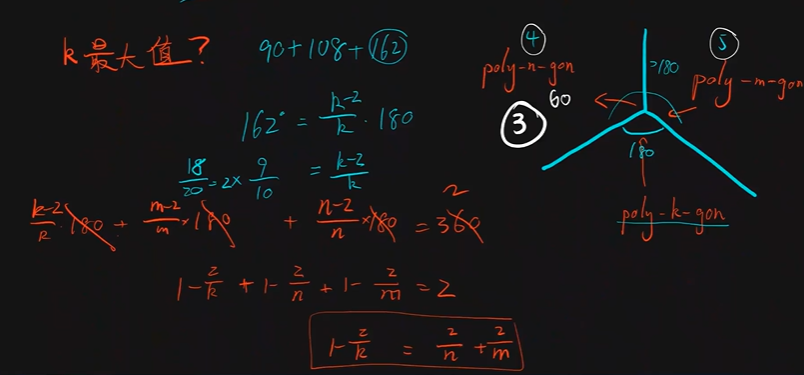 k最大值？ 90+108+162
162° = (k-2)/k · 180
18/20 = 2 × 9/10 = (k-2)/k
(k-2)/k · 180 + (m-2)/m × 180 + (n-2)/n × 180 = 360 2
1 - 2/k + 1 - 2/n + 1 - 2/m = 2
1 - 2/k = 2/n + 2/m
4
poly-n-gon
3
60
>180
5
poly-m-gon
180
poly-k-gon